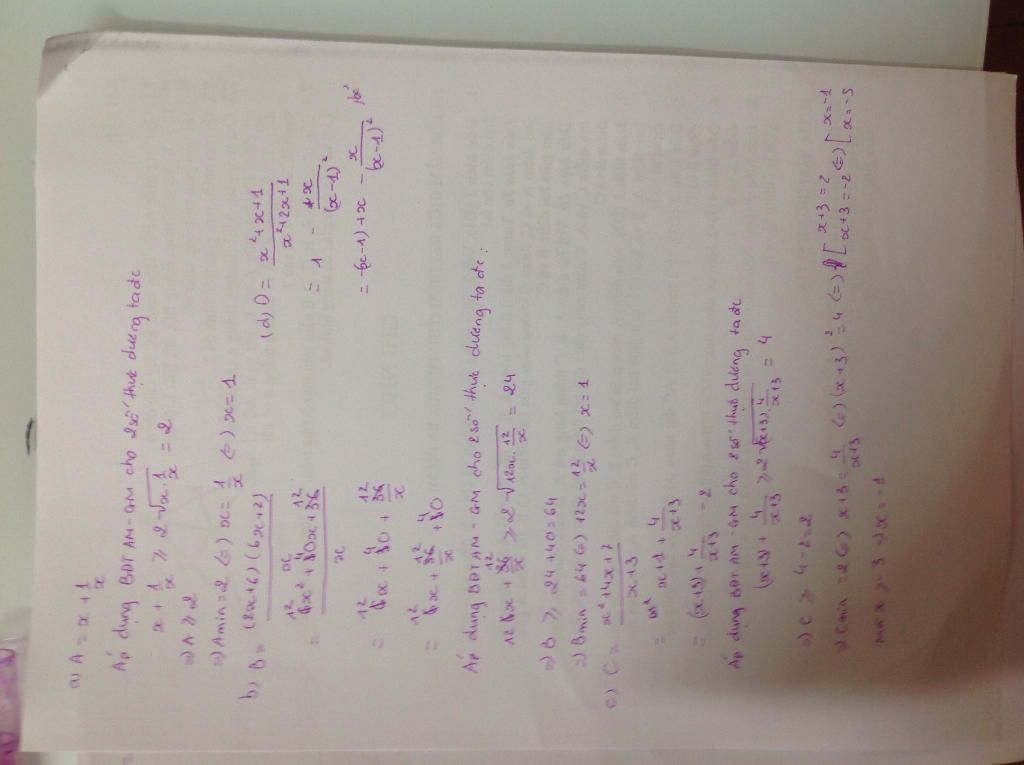 a) A = x + 1/x
Áp dụng BĐT AM-GM cho 2 số thực dương ta đc
x + 1/x ≥ 2√(x · 1/x) = 2
=) A ≥ 2
=) Amin = 2 (=) x = 1/x (=) x = 1
b) B = (2x+6)(6x+2)
= 12x² + 40x + 12 / x
= 12x + 40 + 12/x
= 12x + 12/x + 40
Áp dụng BĐT AM-GM cho 2 số thực dương ta đc:
12x + 12/x ≥ 2√(12x · 12/x) = 24
=) B ≥ 24 + 40 = 64
=) Bmin = 64 (=) 12x = 12/x (=) x = 1
c) C = x² + 4x + 7 / x+3
= x + 1 + 4/x+3
= (x+3) + 4/x+3 - 2
Áp dụng BĐT AM-GM cho 2 số thực dương ta đc
(x+3) + 4/x+3 ≥ 2√((x+3) · 4/x+3) = 4
=) C ≥ 4 - 2 = 2
=) Cmin = 2 (=) x+3 = 4/x+3 (=) (x+3)² = 4 (=) [ x+3 = 2 x+3 = -2 (=) [ x = -1 x = -5
mà x > -3 =) x = -1
(d) D = x² + x + 1 / x² + 2x + 1
= 1 - x/(x-1)²
= -(x-1) + x - x/(x-1)²